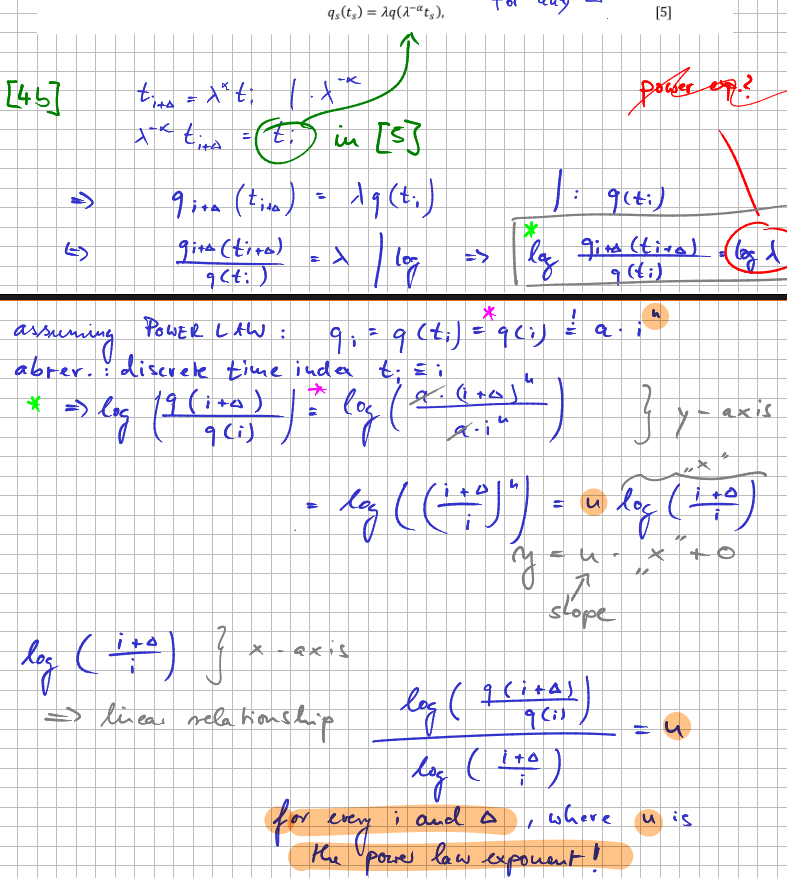 for any
qₛ(tₛ) = λq(λ^{-α}tₛ), [5]
[4b] t_{i+Δ} = λ^α t_i | · λ^{-α}
power exp.?
λ^{-α} t_{i+Δ} = t_i in [5]
=> q_{i+Δ}(t_{i+Δ}) = λ q(t_i) | : q(t_i)
<=> q_{i+Δ}(t_{i+Δ}) / q(t_i) = λ | log => * log q_{i+Δ}(t_{i+Δ}) / q(t_i) = log λ
assuming POWER LAW : q_i = q(t_i) =* q(i) =! a · i^n
abrev. : discrete time index t_i ≡ i
* => log (q(i+Δ) / q(i)) =* log (a · (i+Δ)^n / a · i^n) } y-axis
"x"
= log (((i+Δ) / i)^n) = n log ((i+Δ) / i)
y = n · "x" + 0
slope
log ((i+Δ) / i) } x-axis
=> linear relationship
log (q(i+Δ) / q(i)) / log ((i+Δ) / i) = n
for every i and Δ, where n is
the power law exponent!